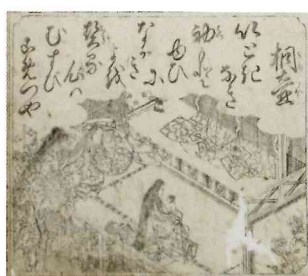 桐壺
いときなき
初もと
ゆひに
なかき
よを
契る
心ハ
むすひ
こめつや